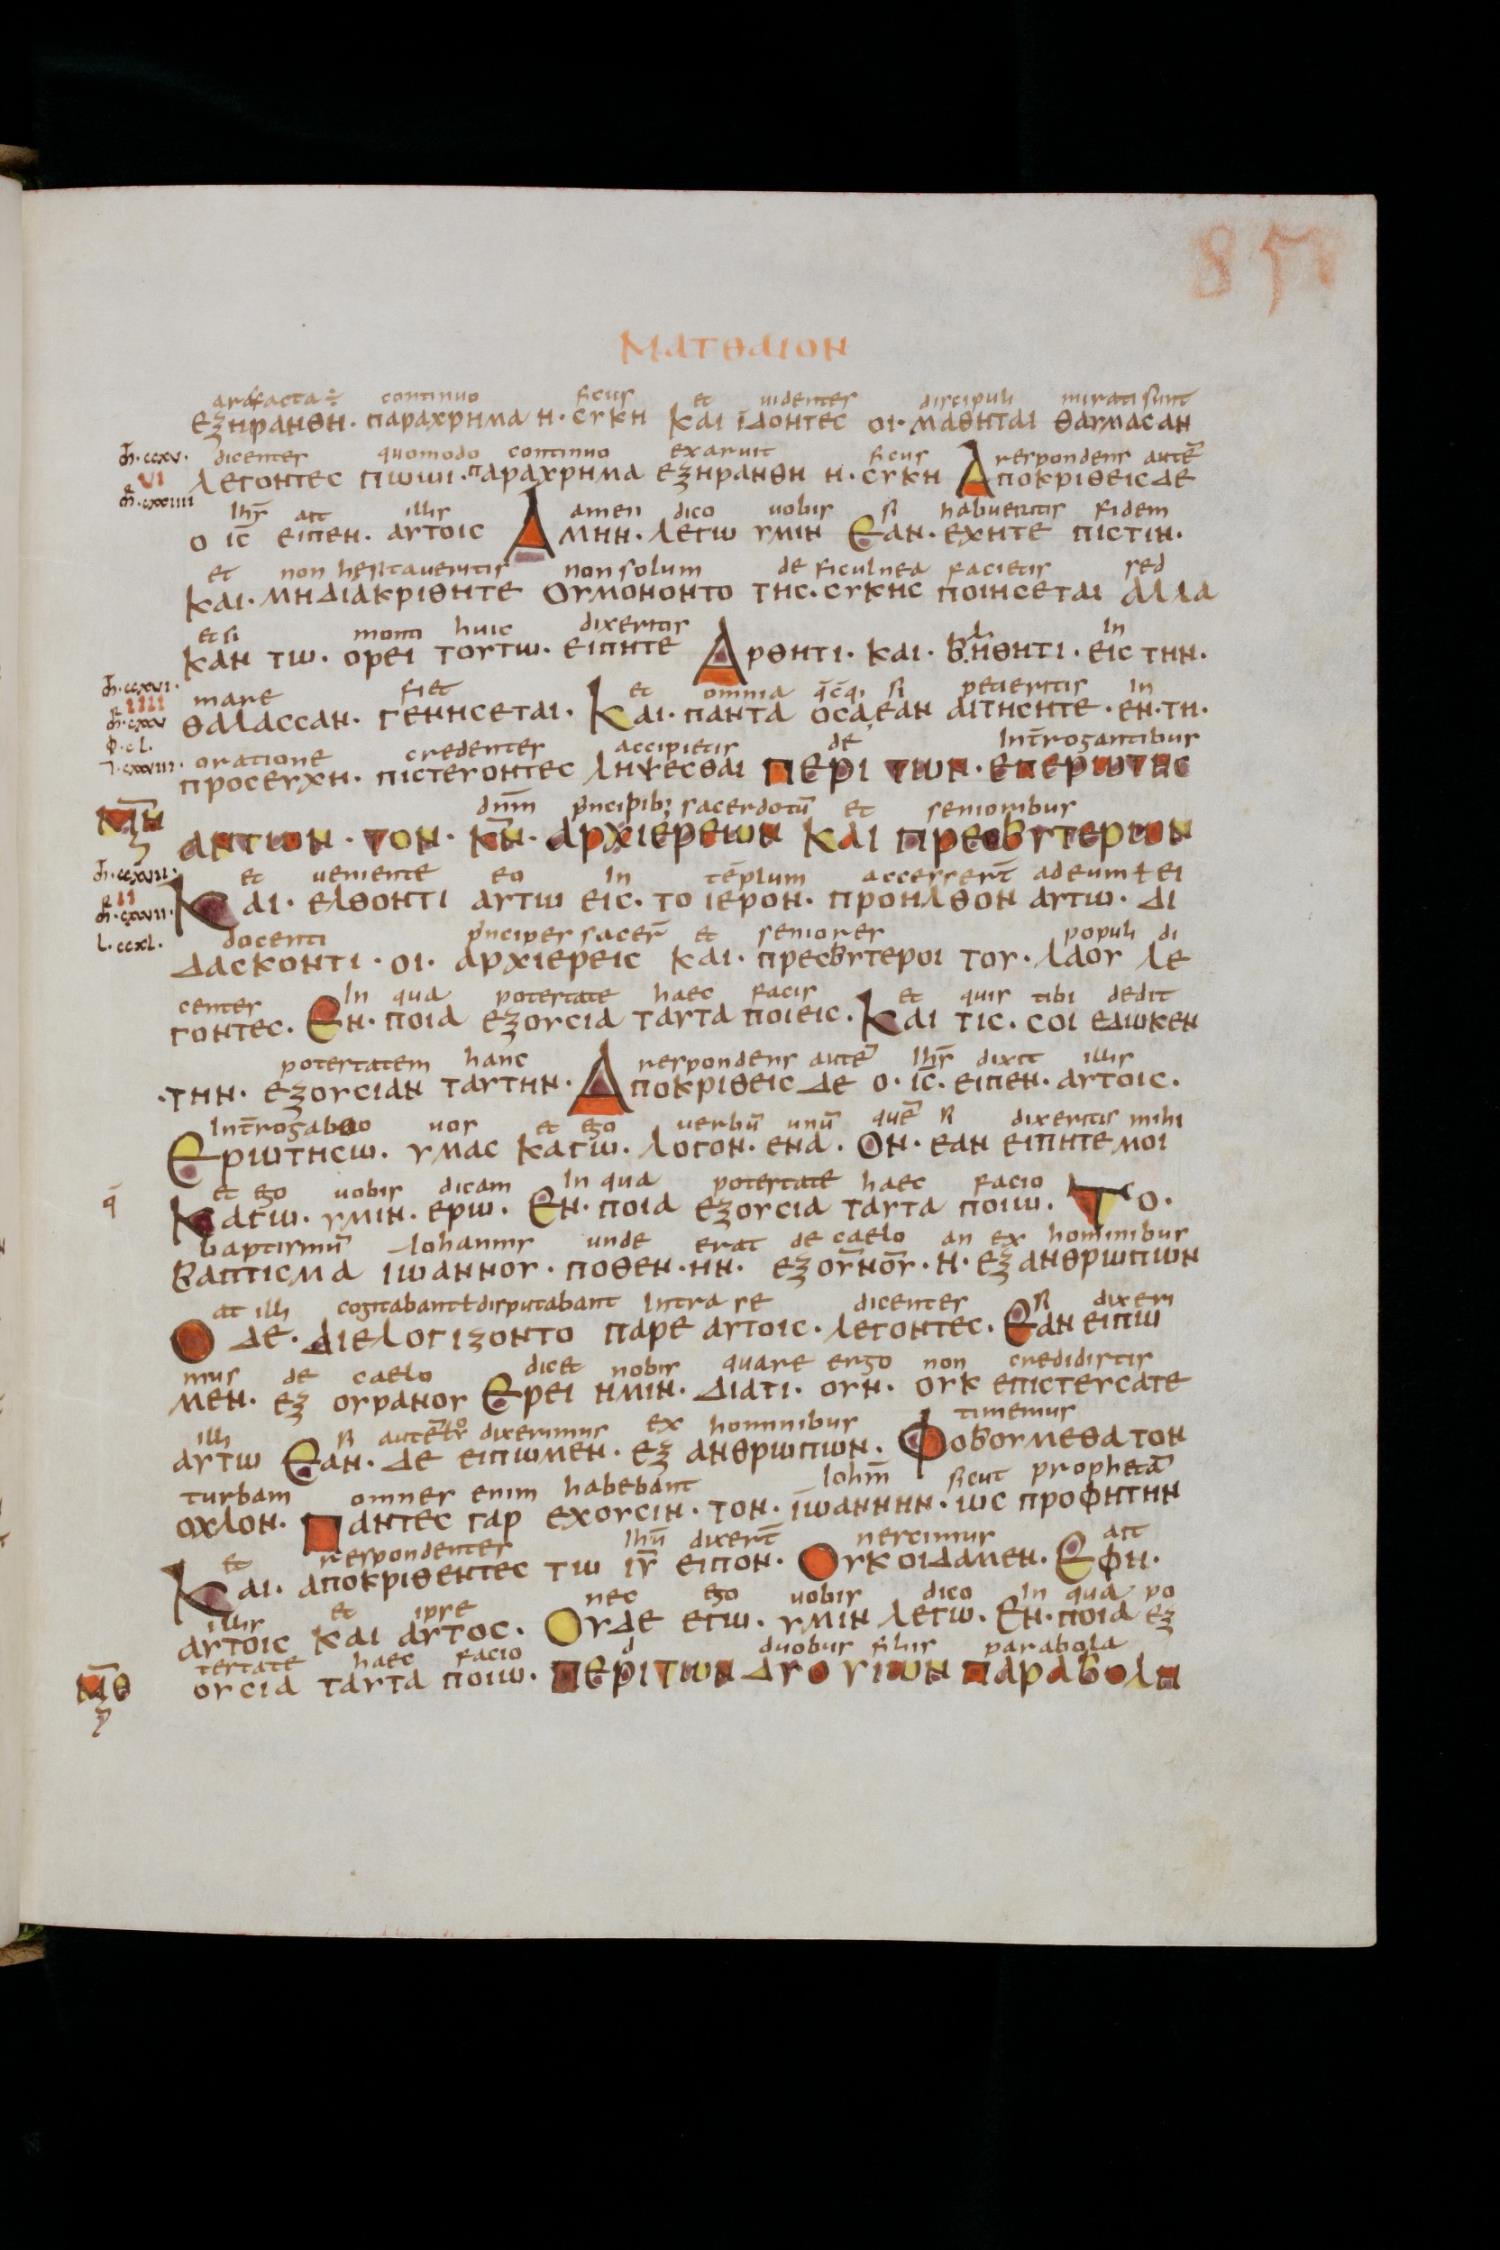 85
ΜΑΤΘΑΙΟΝ
arefacta ÷ continuo ficus et uidentes discipuli mirati sunt
ΕΞΗΡΑΝΘΗ· ΠΑΡΑΧΡΗΜΑ Η· СΥΚΗ ΚΑΙ ΪΔΟΝΤΕС ΟΙ· ΜΑΘΗΤΑΙ ΘΑΥΜΑСΑΝ
dicentes quomodo continuo exaruit ficus respondens autē
ΛΕΓΟΝΤΕС ΠΩΩΙ· ΠΑΡΑΧΡΗΜΑ ΕΞΗΡΑΝΘΗ Η· СΥΚΗ ΑΠΟΚΡΙΘΕΙС ΔΕ
ihs̄ ait illis amen dico uobis si habueritis fidem
Ο ΙС̄ ΕΙΠΕΝ· ΑΥΤΟΙС ΑΜΗΝ· ΛΕΓΩ ΥΜΙΝ ΕΑΝ· ΕΧΗΤΕ ΠΙСΤΙΝ·
et non hesitaueritis non solum de ficulnea facietis sed
ΚΑΙ· ΜΗΔΙΑΚΡΙΘΗΤΕ ΟΥΜΟΝΟΝΤΟ ΤΗС· СΥΚΗС ΠΟΙΗСΕΤΑΙ ΑΛΛΑ
et si monti huic dixeritis in
ΚΑΝ ΤΩ· ΟΡΕΙ ΤΟΥΤΩ· ΕΙΠΗΤΕ ΑΡΘΗΤΙ· ΚΑΙ· ΒΛΗΘΗΤΙ· ΕΙС ΤΗΝ·
mare fiet et omnia q̄cq; si petieritis in
ΘΑΛΑССΑΝ· ΓΕΝΗСΕΤΑΙ· ΚΑΙ· ΠΑΝΤΑ ΟСΑ ΕΑΝ ΑΙΤΗСΗΤΕ· ΕΝ· ΤΗ·
oratione credentes accipietis de int̄rogantibus
ΠΡΟСΕΥΧΗ· ΠΙСΤΕΥΟΝΤΕС ΛΗΨΕСΘΑΙ ΠΕΡΙ ΤΩΝ· ΕΠΕΡΩΤΗС
dnm̄ p̄ncipib; sacerdotū et senioribus
ΑΝΤΩΝ· ΤΟΝ· ΚΝ̄· ΑΡΧΙΕΡΕΩΝ ΚΑΙ ΠΡΕСΒΥΤΕΡΩΝ
et ueniente eo in tēplum accesser̄t ad eum ł ei
ΚΑΙ· ΕΛΘΟΝΤΙ ΑΥΤΩ ΕΙС· ΤΟ ΙΕΡΟΝ· ΠΡΟΗΛΘΟΝ ΑΥΤΩ· ΔΙ
docenti p̄ncipes sacer̄ et seniores populi di
ΔΑСΚΟΝΤΙ· ΟΙ· ΑΡΧΙΕΡΕΙС ΚΑΙ· ΠΡΕСΒΥΤΕΡΟΙ ΤΟΥ· ΛΑΟΥ ΛΕ
centes in qua potestate haec facis et quis tibi dedit
ΓΟΝΤΕС· ΕΝ· ΠΟΙΑ ΕΞΟΥСΙΑ ΤΑΥΤΑ ΠΟΙΕΙС· ΚΑΙ ΤΙС· СΟΙ ΕΔΩΚΕΝ
potestatem hanc respondens autē ihs̄ dixit illis
·ΤΗΝ· ΕΞΟΥСΙΑΝ ΤΑΥΤΗΝ· ΑΠΟΚΡΙΘΕΙС ΔΕ Ο· ΙС̄· ΕΙΠΕΝ· ΑΥΤΟΙС·
int̄rogabo uos et ego uerbū unū quē si dixeritis mihi
ΕΡΩΤΗСΩ· ΥΜΑС ΚΑΓΩ· ΛΟΓΟΝ· ΕΝΑ· ΟΝ· ΕΑΝ ΕΙΠΗΤΕ ΜΟΙ
et ego uobis dicam in qua potestate haec facio
ΚΑΓΩ· ΥΜΙΝ· ΕΡΩ· ΕΝ· ΠΟΙΑ ΕΞΟΥСΙΑ ΤΑΥΤΑ ΠΟΙΩ· ΤΟ·
baptismū iohannis unde erat de caelo an ex hominibus
ΒΑΠΤΙСΜΑ ΙΩΑΝΝΟΥ· ΠΟΘΕΝ· ΗΝ· ΕΞ ΟῩΝΟῩ· Η· ΕΞ ΑΝΘΡΩΠΩΝ
at illi cogitabant ł disputabant intra se dicentes si dixeri
Ο ΔΕ· ΔΙΕΛΟΓΙΖΟΝΤΟ ΠΑΡΕ ΑΥΤΟΙС· ΛΕΓΟΝΤΕС· ΕΑΝ ΕΙΠΩ
mus de caelo dicet nobis quare ergo non credidistis
ΜΕΝ· ΕΞ ΟΥΡΑΝΟΥ ΕΡΕΙ ΗΜΙΝ· ΔΙΑΤΙ· ΟΥΝ· ΟΥΚ ΕΠΙСΤΕΥСΑΤΕ
illi si autē dixerimus ex hominibus timemus
ΑΥΤΩ ΕΑΝ· ΔΕ ΕΙΠΩΜΕΝ· ΕΞ ΑΝΘΡΩΠΩΝ· ΦΟΒΟΥΜΕΘΑ ΤΟΝ
turbam omnes enim habebant iohm̄ sicut prophetā
ΟΧΛΟΝ· ΠΑΝΤΕС ΓΑΡ ΕΧΟΥСΙΝ· ΤΟΝ· ΪΩΑΝΝΗΝ· ΩС ΠΡΟΦΗΤΗΝ
et respondentes ihū dixer̄t nescimus ait
ΚΑΙ· ΑΠΟΚΡΙΘΕΝΤΕС ΤΩ ΙῩ ΕΙΠΟΝ· ΟΥΚ ΟΙΔΑΜΕΝ· ΕΦΗ·
illis et ipse nec ego uobis dico in qua po
ΑΥΤΟΙС ΚΑΙ ΑΥΤΟС· ΟΥΔΕ ΕΓΩ· ΥΜΙΝ ΛΕΓΩ· ΕΝ· ΠΟΙΑ ΕΞ
testate haec facio d duobus filiis parabola
ΟΥСΙΑ ΤΑΥΤΑ ΠΟΙΩ· ΠΕΡΙ ΤΩΝ ΔΥΟ ΥΙΩΝ ΠΑΡΑΒΟΛΗ
m̄·ccxv·
R VI
m̄·cxxiiii
m̄·ccxvi·
R IIII
m̄·cxxv
Φ·cl·
ī·cxxviii·
ΜΗ̄
m̄·ccxvii·
R II
m̄·cxxvii·
l·ccxl·
q̄
ΜΘ̄